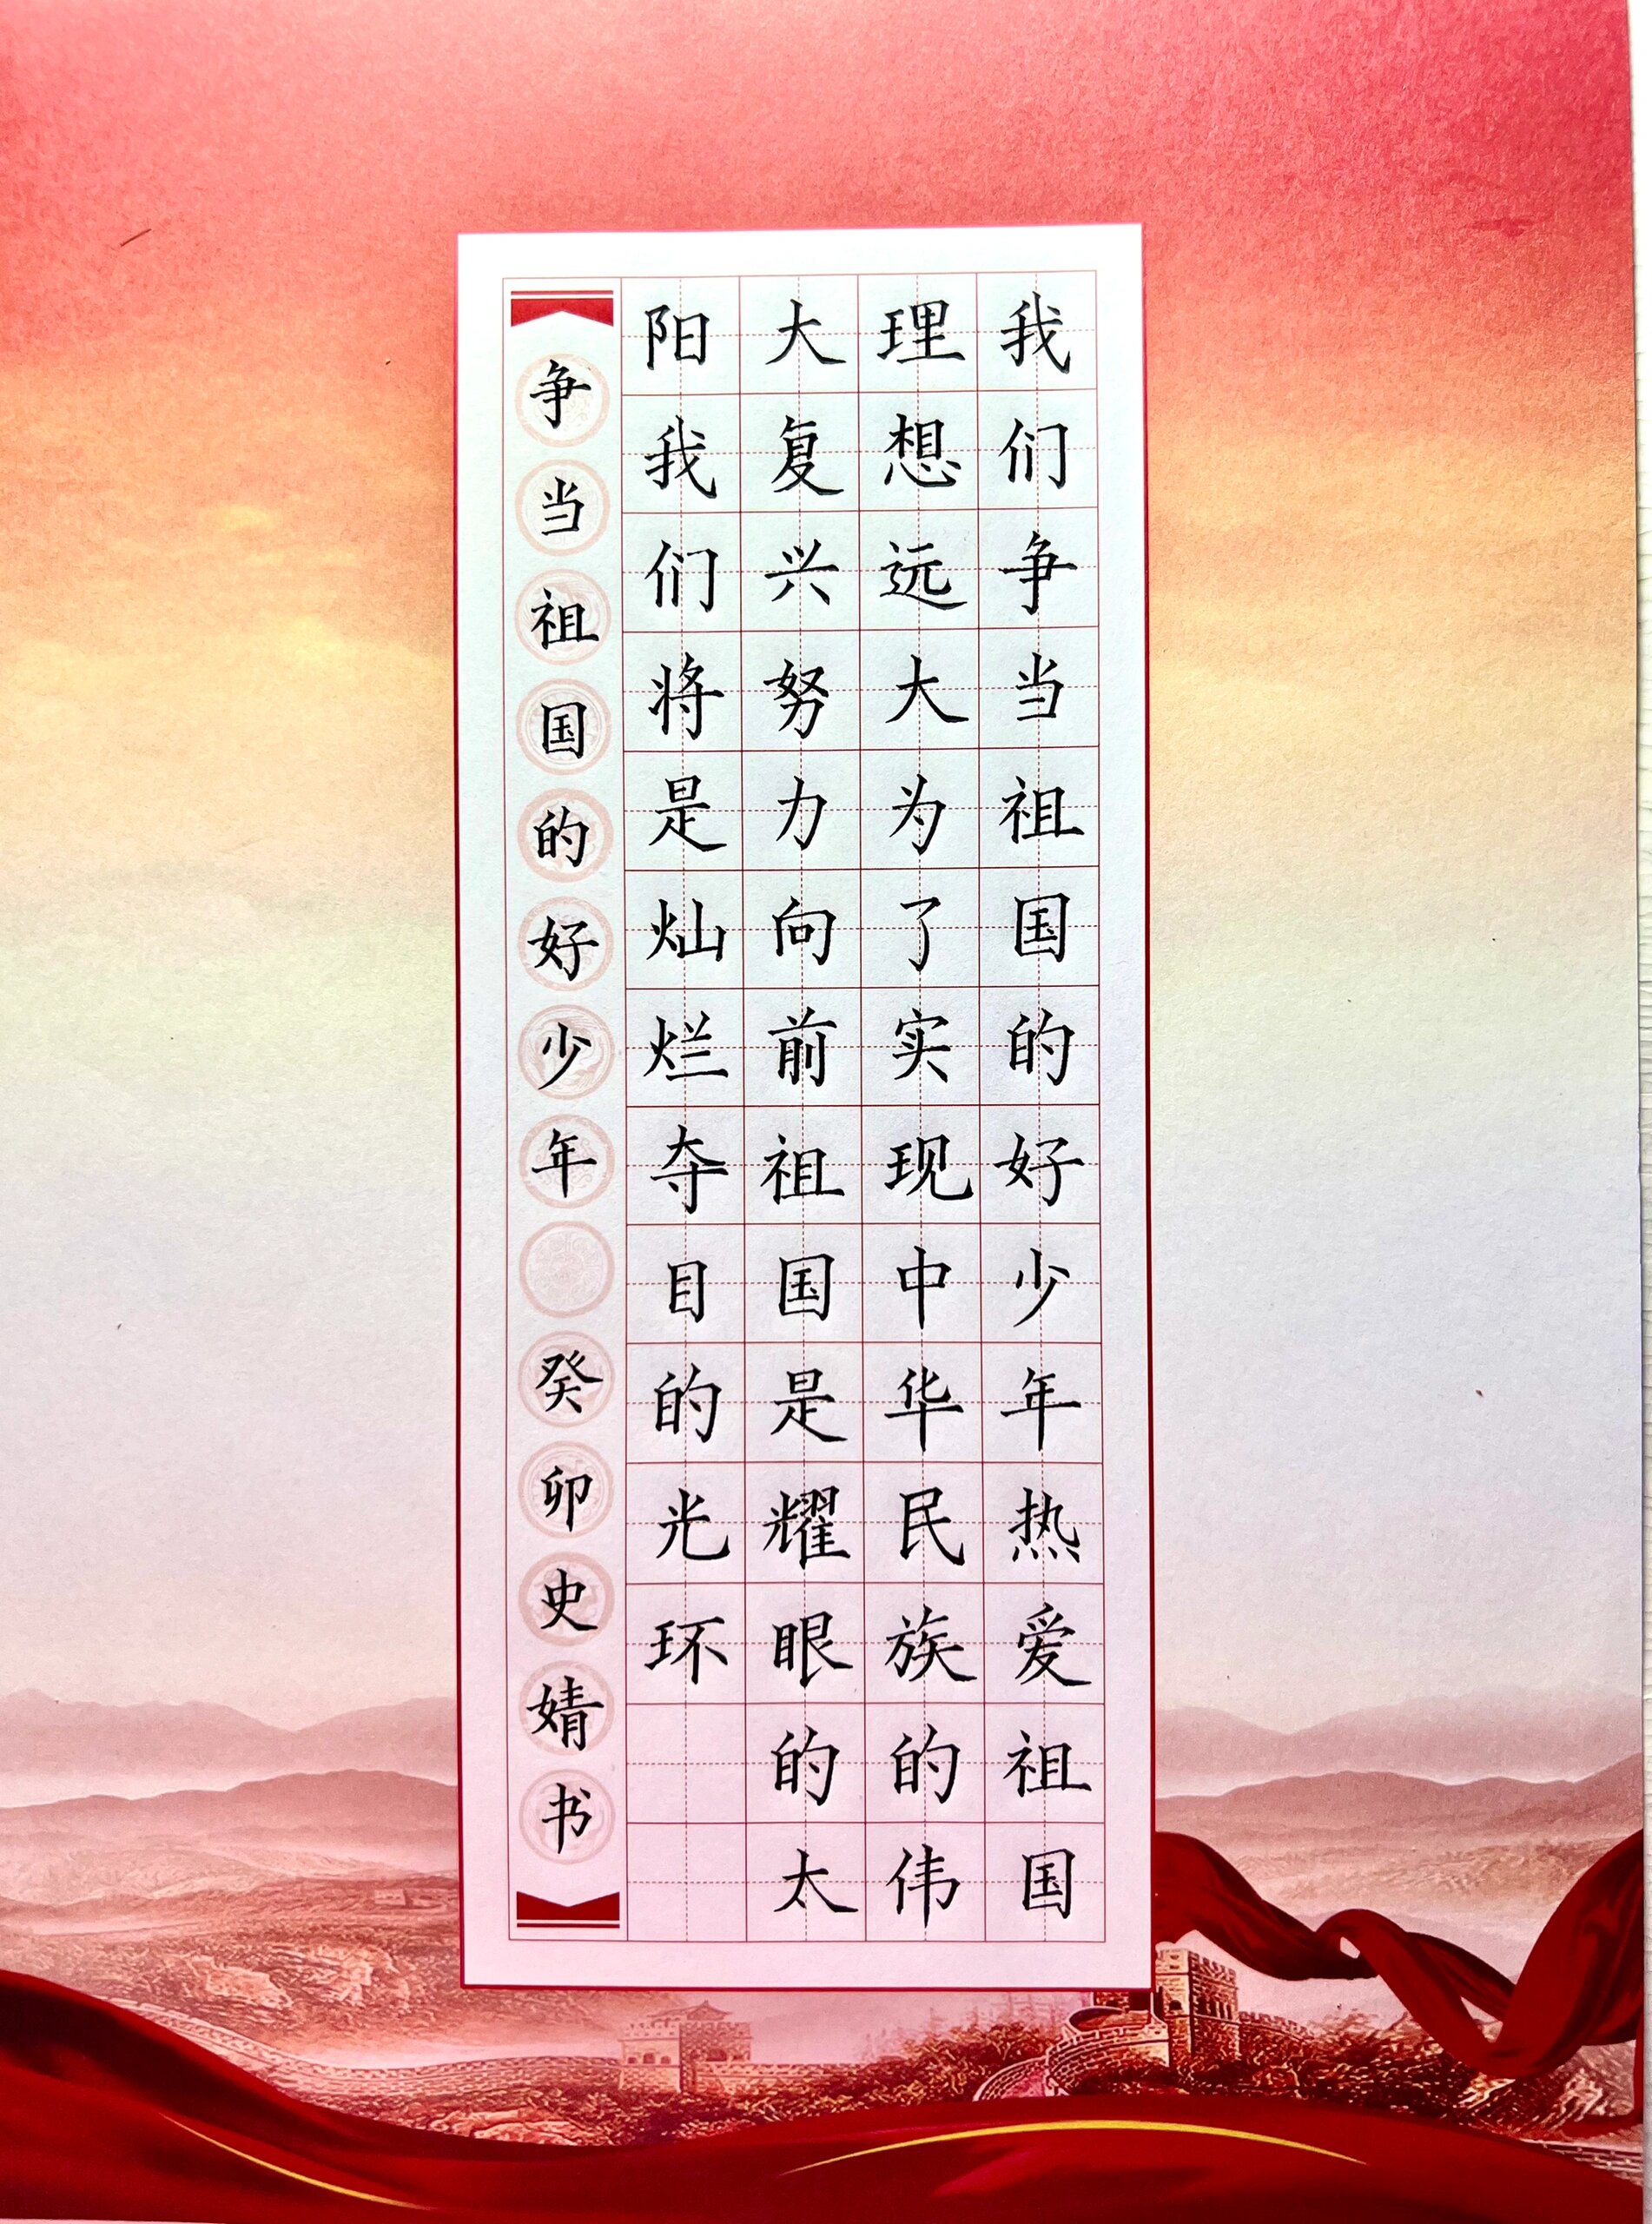 我们争当祖国的好少年热爱祖国
理想远大为了实现中华民族的伟
大复兴努力向前祖国是耀眼的太
阳我们将是灿烂夺目的光环
争当祖国的好少年 癸卯史婧书